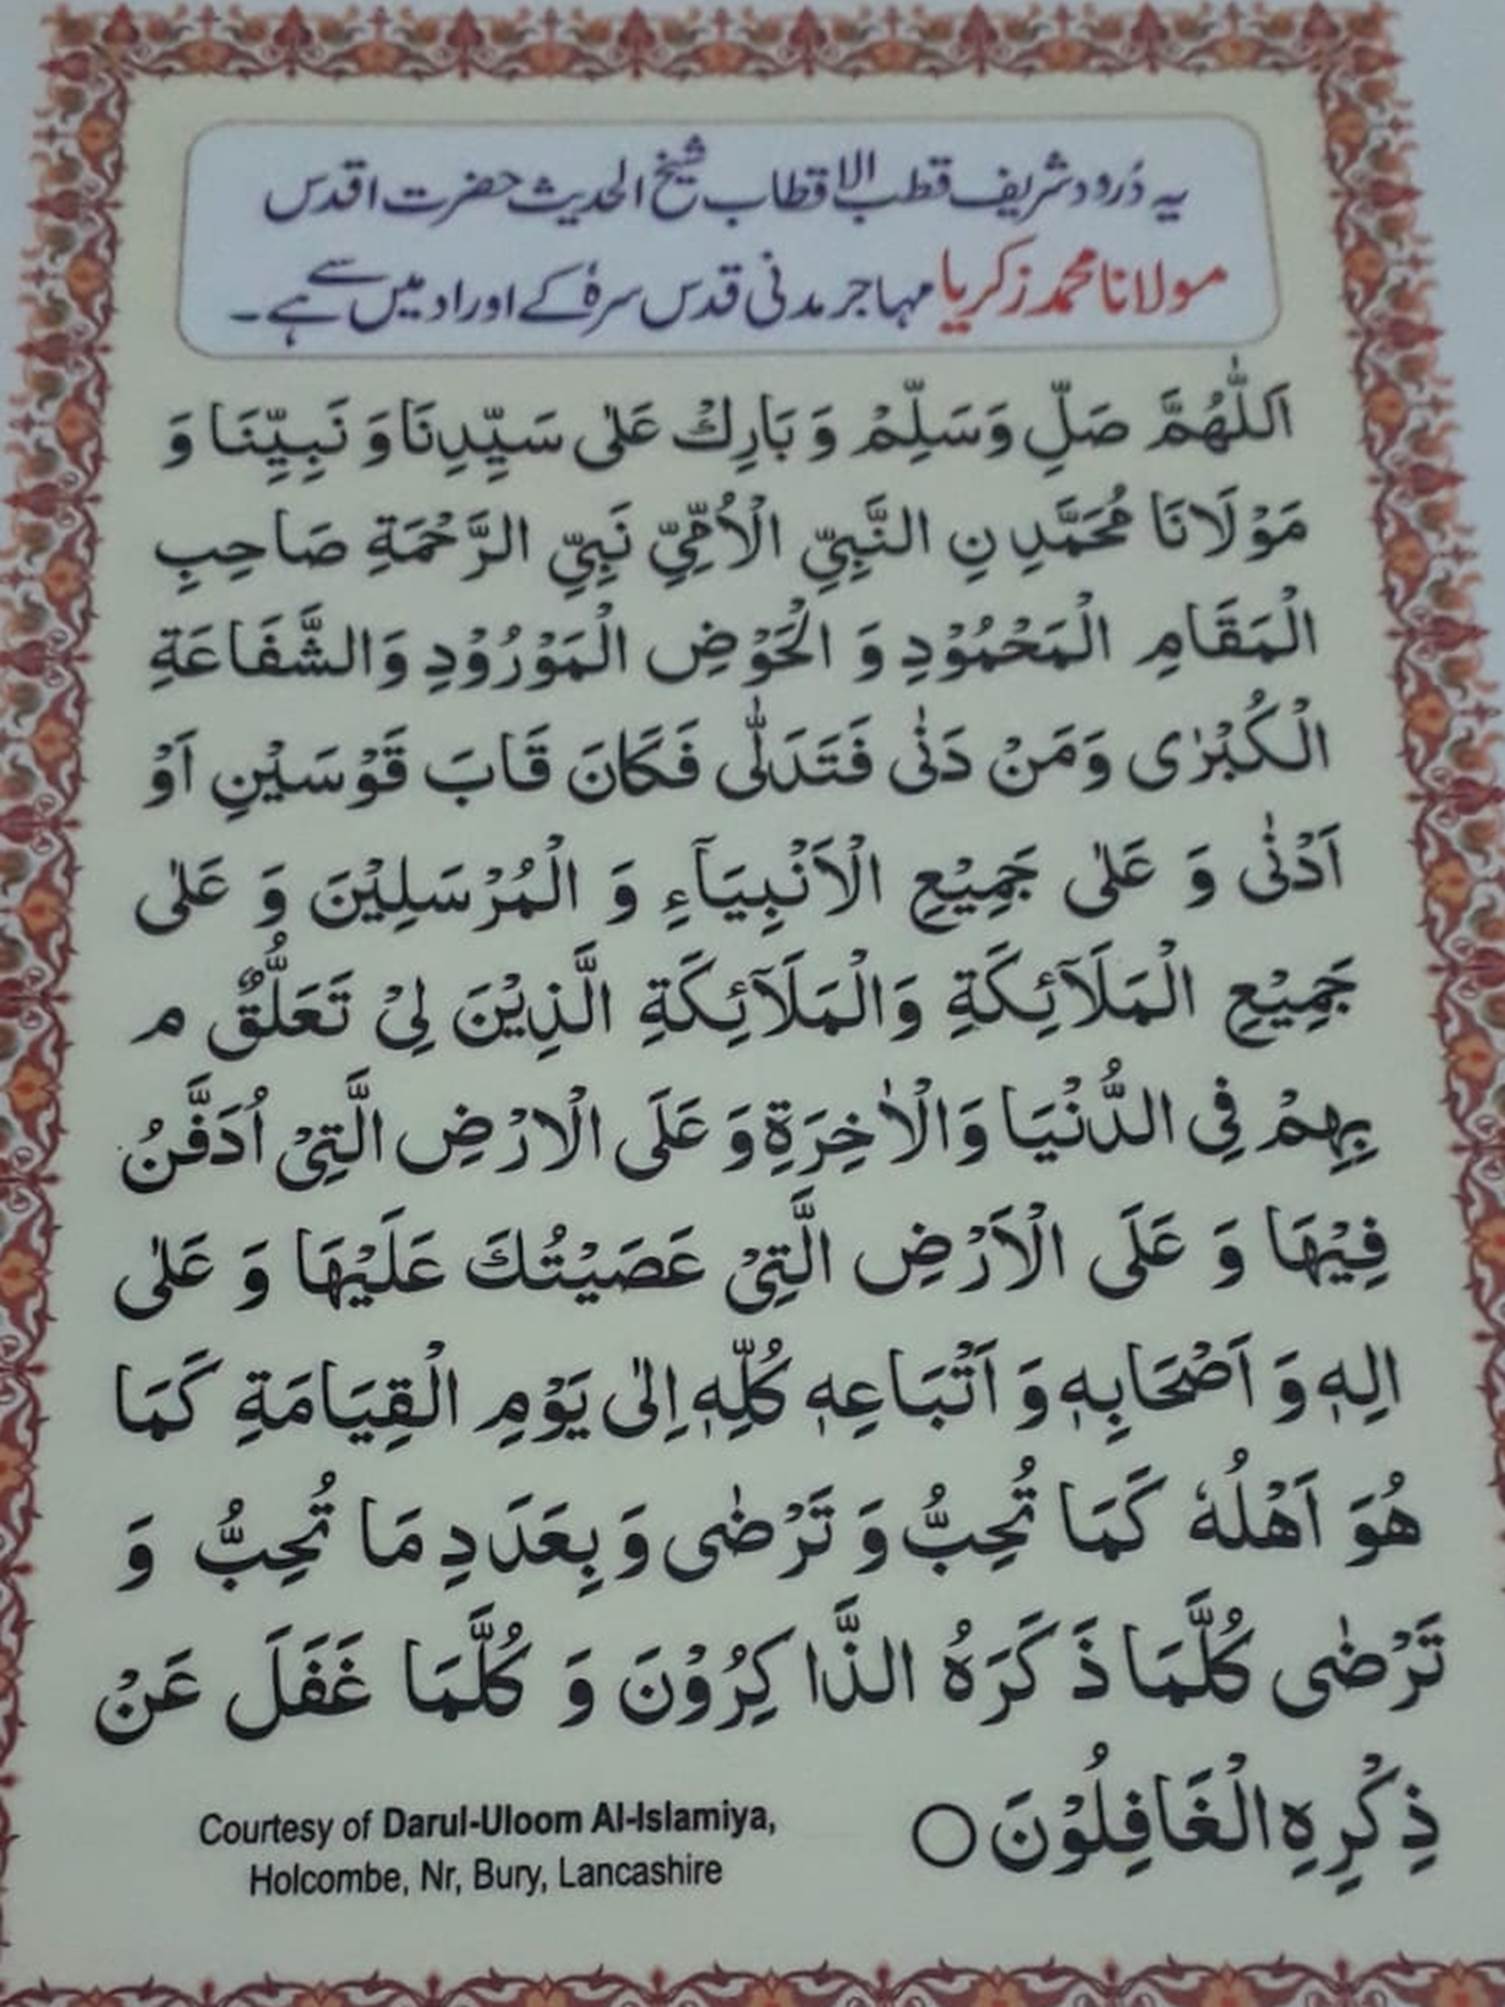 یہ دُرود شریف قطب الاقطاب شیخ الحدیث حضرت اقدس
مولانا محمد زکریا مہاجر مدنی قدس سرہٗ کے اوراد میں سے ہے۔
اَللّٰهُمَّ صَلِّ وَسَلِّمْ وَ بَارِكْ عَلٰى سَيِّدِنَا وَ نَبِيِّنَا وَ
مَوْلَانَا مُحَمَّدِ نِ النَّبِيِّ الْاُمِّيِّ نَبِيِّ الرَّحْمَةِ صَاحِبِ
الْمَقَامِ الْمَحْمُوْدِ وَ الْحَوْضِ الْمَوْرُوْدِ وَالشَّفَاعَةِ
الْكُبْرٰى وَمَنْ دَنٰى فَتَدَلّٰى فَكَانَ قَابَ قَوْسَيْنِ اَوْ
اَدْنٰى وَ عَلٰى جَمِيْعِ الْاَنْبِيَآءِ وَ الْمُرْسَلِيْنَ وَ عَلٰى
جَمِيْعِ الْمَلَآئِكَةِ وَالْمَلَآئِكَةِ الَّذِيْنَ لِيْ تَعَلُّقٌ م
بِهِمْ فِي الدُّنْيَا وَالْاٰخِرَةِ وَ عَلَى الْارْضِ الَّتِيْ اُدَفَّنُ
فِيْهَا وَ عَلَى الْاَرْضِ الَّتِيْ عَصَيْتُكَ عَلَيْهَا وَ عَلٰى
الِهٖ وَ اَصْحَابِهٖ وَ اَتْبَاعِهٖ كُلِّهٖ اِلٰى يَوْمِ الْقِيَامَةِ كَمَا
هُوَ اَهْلُهٗ كَمَا تُحِبُّ وَ تَرْضٰى وَ بِعَدَدِ مَا تُحِبُّ وَ
تَرْضٰى كُلَّمَا ذَكَرَهُ الذَّاكِرُوْنَ وَ كُلَّمَا غَفَلَ عَنْ
ذِكْرِهِ الْغَافِلُوْنَ ○
Courtesy of Darul-Uloom Al-Islamiya,
Holcombe, Nr, Bury, Lancashire